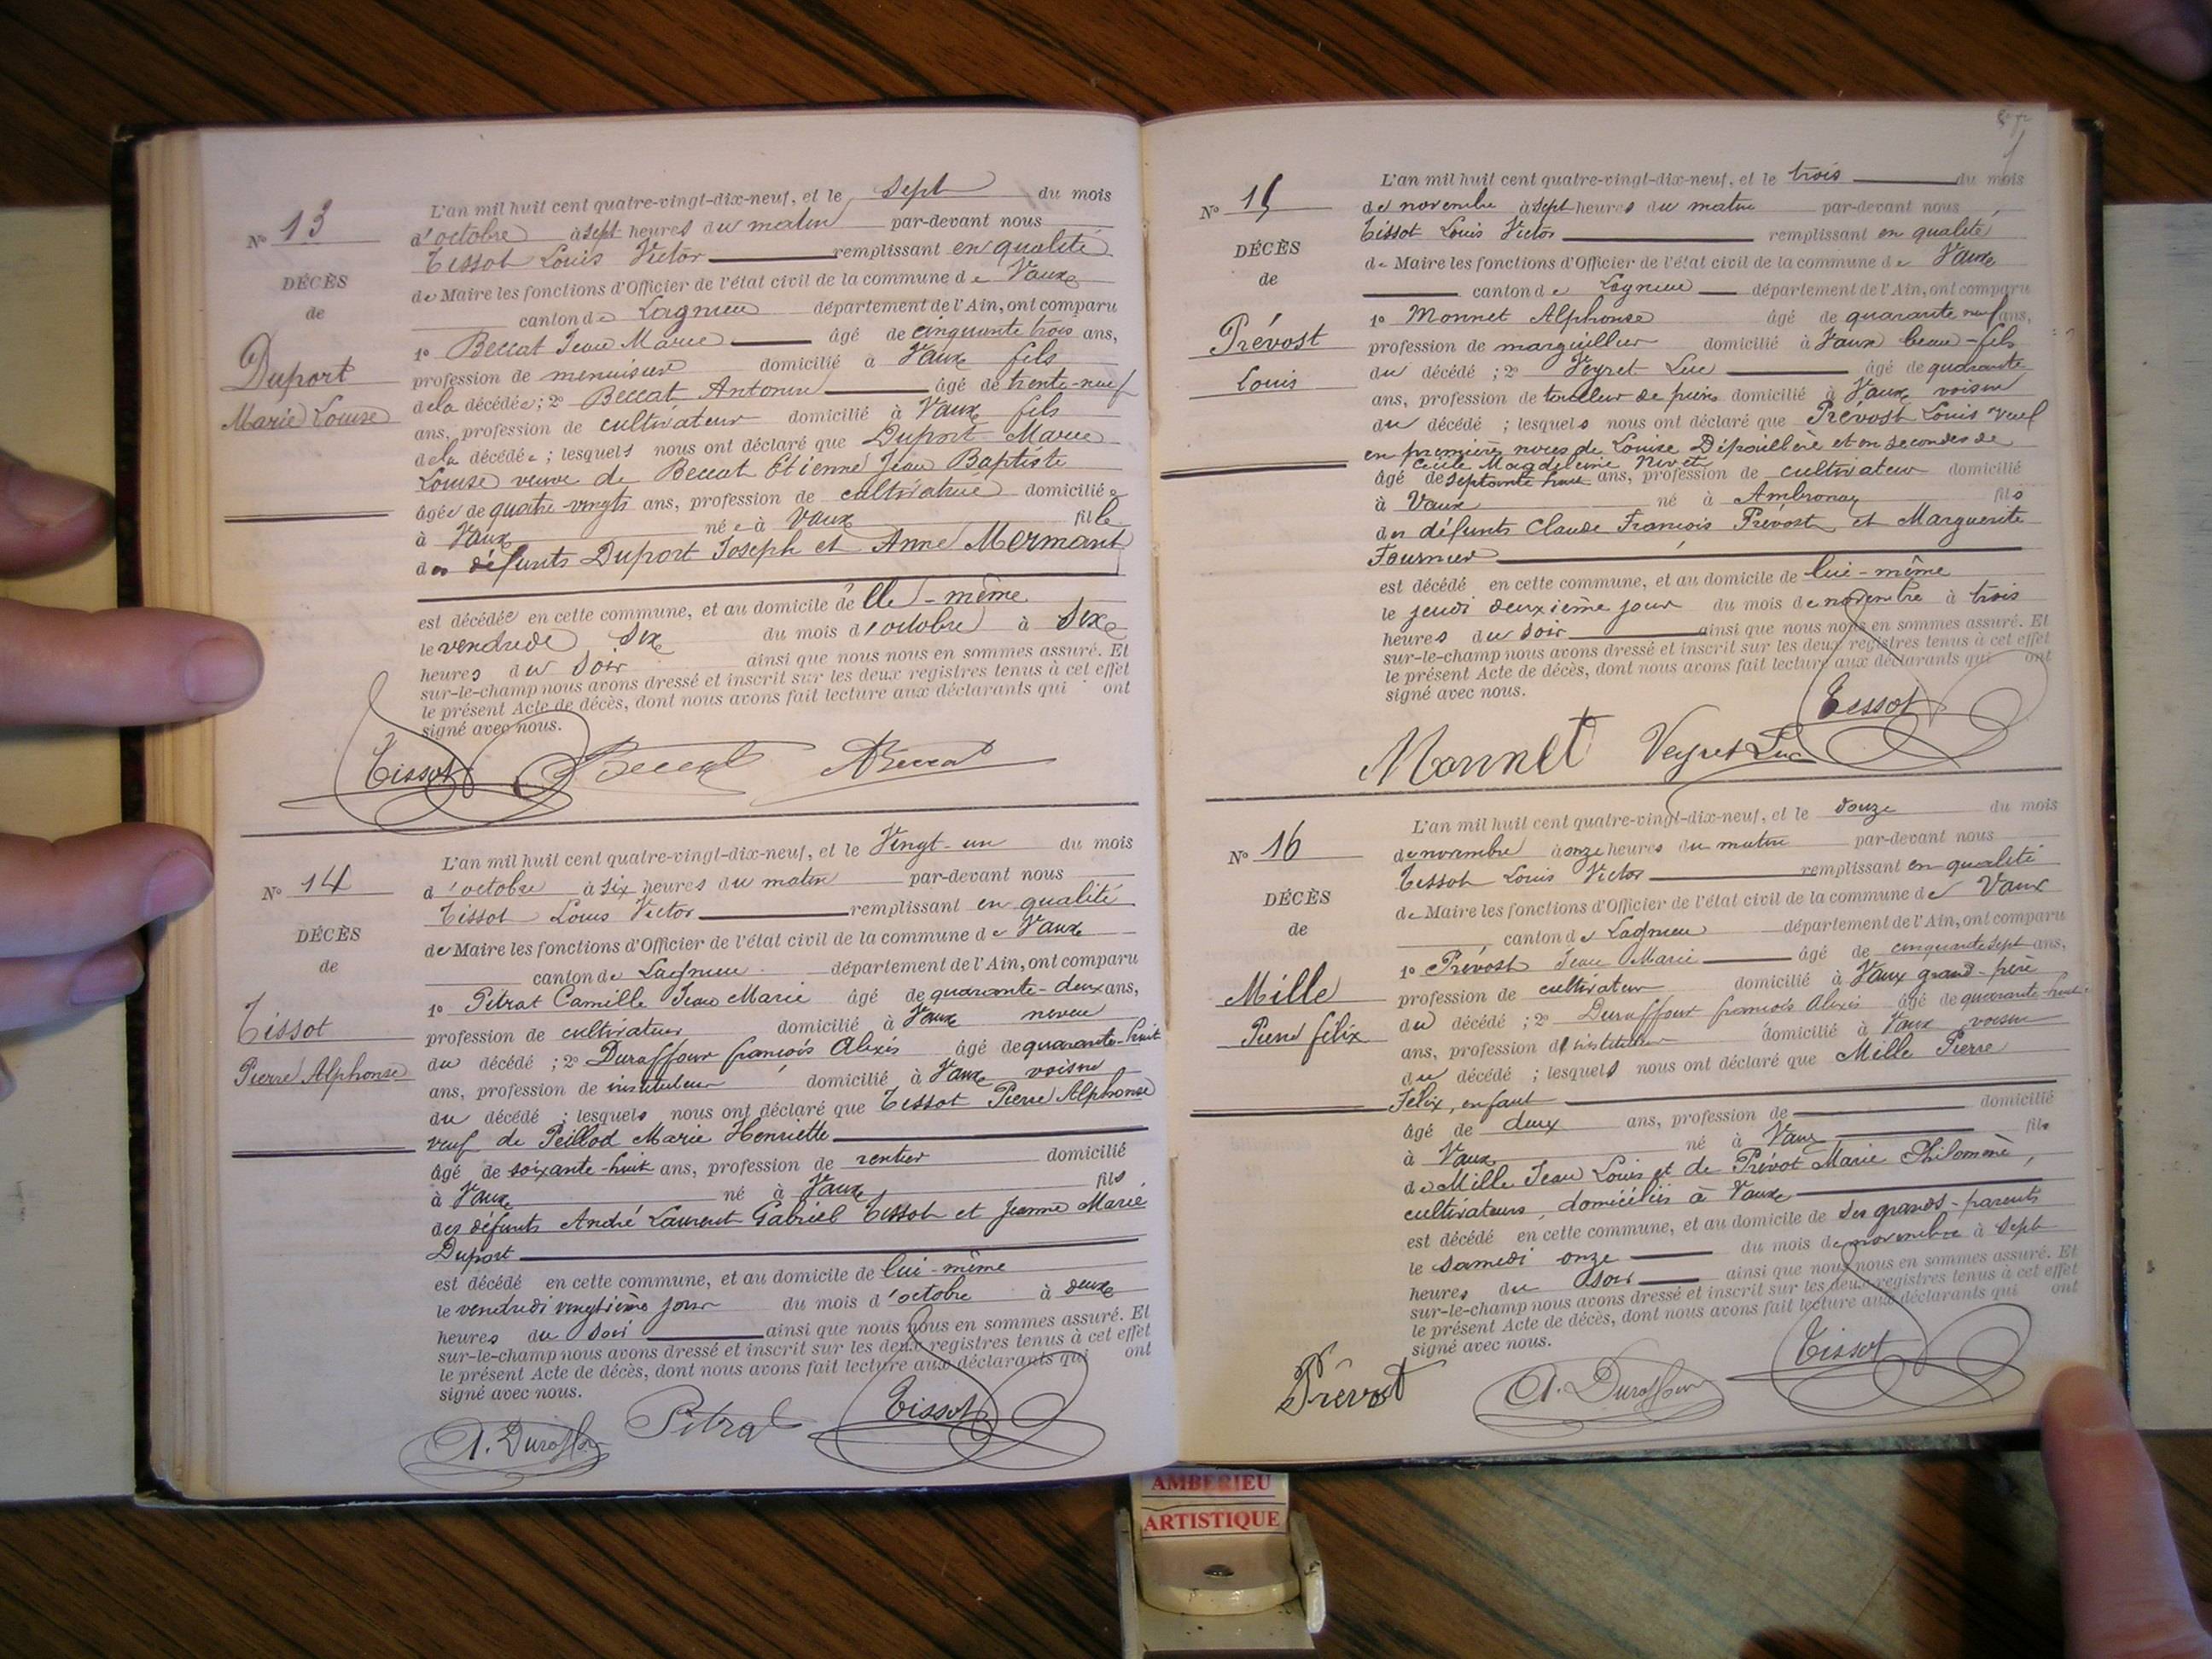 L'an mil huit cent quatre-vingt-dix-neuf, et le sept du mois
Nº 13
d'octobre à sept heures du matin par-devant nous
Tissot Louis Victor remplissant en qualité
DÉCÈS
de Maire les fonctions d'Officier de l'état civil de la commune de Vaux
de
canton de Lagnieu département de l'Ain, ont comparu
1º Beccat Jean Marie âgé de cinquante trois ans,
Duport
profession de menuisier domicilié à Vaux fils
Marie Louise
de la décédée; 2º Beccat Antonin âgé de trente-neuf
ans, profession de cultivateur domicilié à Vaux fils
de la décédée; lesquels nous ont déclaré que Duport Marie
Louise veuve de Beccat Etienne Jean Baptiste
âgée de quatre-vingts ans, profession de cultivatrice domiciliée
à Vaux née à Vaux fille
des défunts Duport Joseph et Anne Mermant
est décédée en cette commune, et au domicile de elle-même
le vendredi six du mois d'octobre à six
heures du soir ainsi que nous nous en sommes assuré. Et
sur-le-champ nous avons dressé et inscrit sur les deux registres tenus à cet effet
le présent Acte de décès, dont nous avons fait lecture aux déclarants qui ont
signé avec nous.
Tissot Beccat ABeccat
L'an mil huit cent quatre-vingt-dix-neuf, et le Vingt-un du mois
Nº 14
d'octobre à six heures du matin par-devant nous
Tissot Louis Victor remplissant en qualité
DÉCÈS
de Maire les fonctions d'Officier de l'état civil de la commune de Vaux
de
canton de Lagnieu département de l'Ain, ont comparu
1º Pitrat Camille Jean Marie âgé de quarante-deux ans,
Tissot
profession de cultivateur domicilié à Vaux neveu
Pierre Alphonse
du décédé; 2º Duraffour françois Alexis âgé de quarante-huit
ans, profession de instituteur domicilié à Vaux voisin
du décédé; lesquels nous ont déclaré que Tissot Pierre Alphonse
veuf de Peillod Marie Henriette
âgé de soixante-huit ans, profession de rentier domicilié
à Vaux né à Vaux fils
des défunts André Laurent Gabriel Tissot et Jeanne Marie
Duport
est décédé en cette commune, et au domicile de lui-même
le vendredi vingtième jour du mois d'octobre à deux
heures du soir ainsi que nous nous en sommes assuré. Et
sur-le-champ nous avons dressé et inscrit sur les deux registres tenus à cet effet
le présent Acte de décès, dont nous avons fait lecture aux déclarants qui ont
signé avec nous.
A. Duraffour Pitrat Tissot
L'an mil huit cent quatre-vingt-dix-neuf, et le trois du mois
Nº 15
de novembre à sept heures du matin par-devant nous
Tissot Louis Victor remplissant en qualité
DÉCÈS
de Maire les fonctions d'Officier de l'état civil de la commune de Vaux
de
canton de Lagnieu département de l'Ain, ont comparu
1º Monnet Alphonse âgé de quarante neuf ans,
Prévost
profession de marguillier domicilié à Vaux beau-fils
Louis
du décédé; 2º Veyret Luc âgé de quarante
ans, profession de tailleur de pierre domicilié à Vaux voisin
du décédé; lesquels nous ont déclaré que Prévost Louis veuf
en premières noces de Louise Dépouillère et en secondes de
Cécile Magdeleine Nivet
âgé de septante ans, profession de cultivateur domicilié
à Vaux né à Ambronay fils
des défunts Claude François Prévost et Marguerite
Fournier
est décédé en cette commune, et au domicile de lui-même
le jeudi deuxième jour du mois de novembre à trois
heures du soir ainsi que nous nous en sommes assuré. Et
sur-le-champ nous avons dressé et inscrit sur les deux registres tenus à cet effet
le présent Acte de décès, dont nous avons fait lecture aux déclarants qui ont
signé avec nous.
Monnet Veyret Luc Tissot
L'an mil huit cent quatre-vingt-dix-neuf, et le douze du mois
Nº 16
de novembre à onze heures du matin par-devant nous
Tissot Louis Victor remplissant en qualité
DÉCÈS
de Maire les fonctions d'Officier de l'état civil de la commune de Vaux
de
canton de Lagnieu département de l'Ain, ont comparu
1º Prévost Jean Marie âgé de cinquante sept ans,
Mille
profession de cultivateur domicilié à Vaux grand-père
Pierre félix
du décédé; 2º Duraffour françois Alexis âgé de quarante-huit
ans, profession d'instituteur domicilié à Vaux voisin
du décédé; lesquels nous ont déclaré que Mille Pierre
Félix, enfant
âgé de deux ans, profession de domicilié
à Vaux né à Vaux fils
de Mille Jean Louis et de Prévot Marie Philomène,
cultivateurs, domiciliés à Vaux
est décédé en cette commune, et au domicile de ses grands-parents
le samedi onze du mois de novembre à sept
heures du soir ainsi que nous nous en sommes assuré. Et
sur-le-champ nous avons dressé et inscrit sur les deux registres tenus à cet effet
le présent Acte de décès, dont nous avons fait lecture aux déclarants qui ont
signé avec nous.
Prévost A. Duraffour Tissot
AMBERIEU
ARTISTIQUE